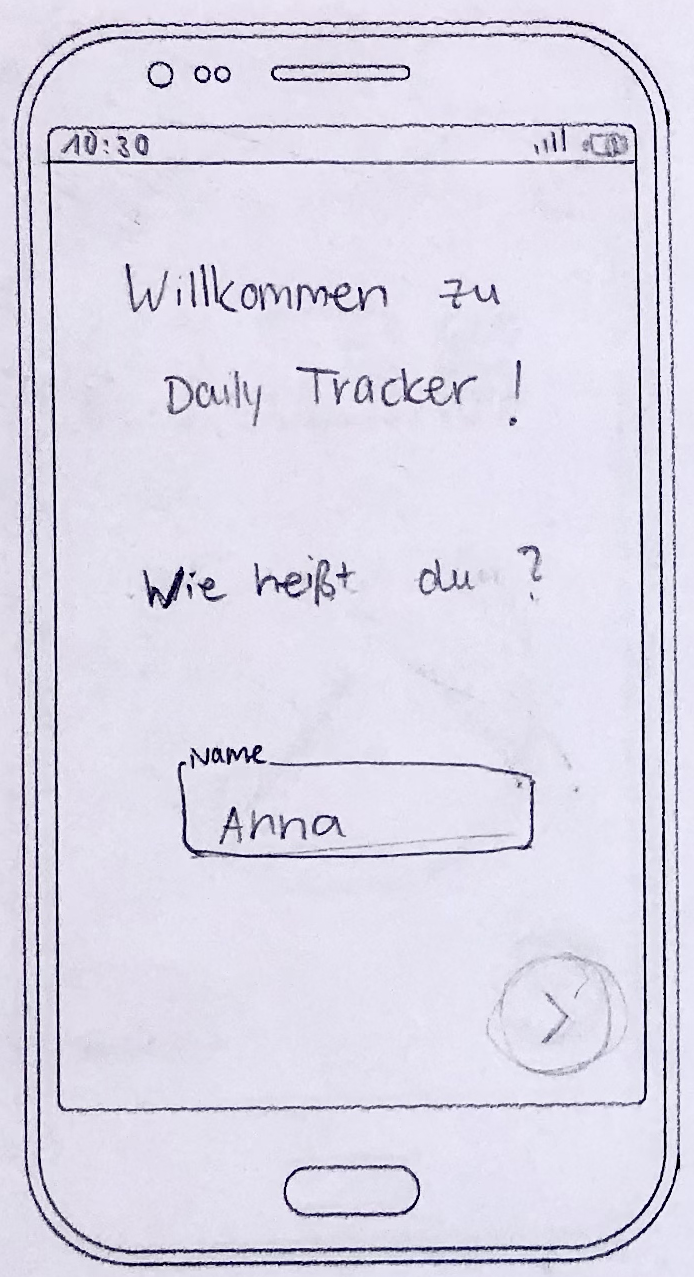 10:30
Willkommen zu
Daily Tracker!
Wie heißt du?
Name
Anna